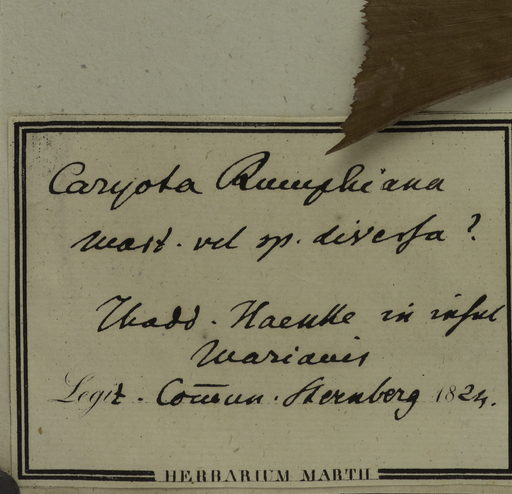 Caryota Rumphiana
Mart. vel sp. diversa?
Thadd. Haenke in insul
Marianis
Legit. Com̄un. Sternberg 1824.
HERBARIUM MARTII